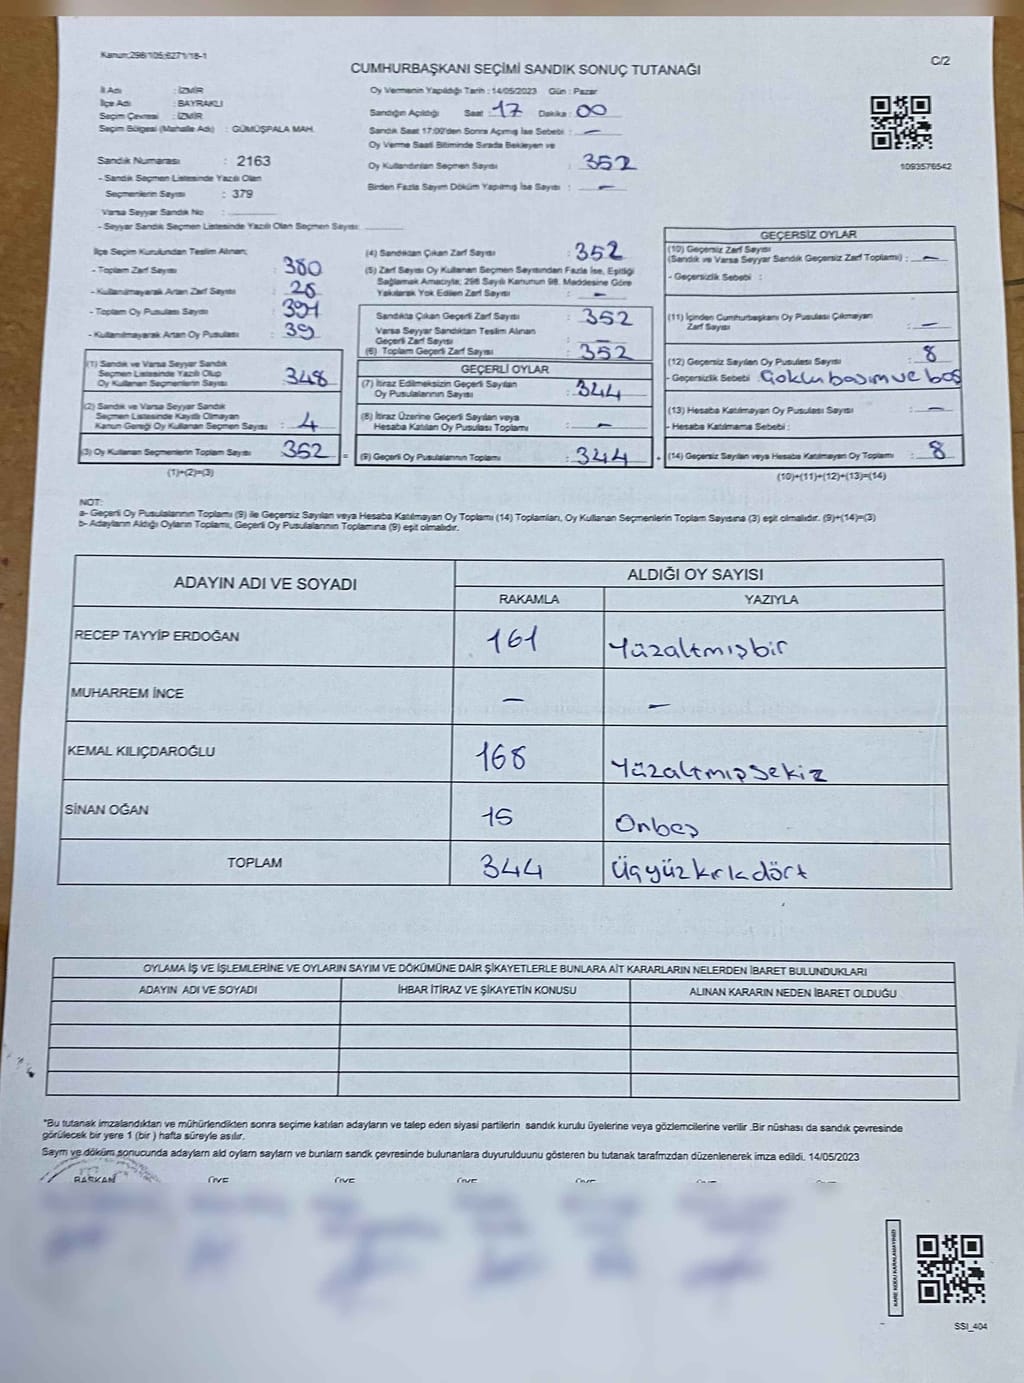 Kanun:298/105;6271/18-1
C/2
CUMHURBAŞKANI SEÇİMİ SANDIK SONUÇ TUTANAĞI
İl Adı : İZMİR
İlçe Adı : BAYRAKLI
Seçim Çevresi : İZMİR
Seçim Bölgesi (Mahalle Adı) : GÜMÜŞPALA MAH.
Sandık Numarası : 2163
- Sandık Seçmen Listesinde Yazılı Olan
Seçmenlerin Sayısı : 379
Varsa Seyyar Sandık No :
- Seyyar Sandık Seçmen Listesinde Yazılı Olan Seçmen Sayısı:
Oy Vermenin Yapıldığı Tarih : 14/05/2023 Gün : Pazar
Sandığın Açıldığı Saat : 17 Dakika : 00
Sandık Saat 17:00'den Sonra Açılmış İse Sebebi : –
Oy Verme Saati Bitiminde Sırada Bekleyen ve
Oy Kullandırılan Seçmen Sayısı : 352
Birden Fazla Sayım Döküm Yapılmış İse Sayısı : –
1093576542
İlçe Seçim Kurulundan Teslim Alınan;
- Toplam Zarf Sayısı : 380
- Kullanılmayarak Artan Zarf Sayısı : 28
- Toplam Oy Pusulası Sayısı : 391
- Kullanılmayarak Artan Oy Pusulası : 39
(1) Sandık ve Varsa Seyyar Sandık
Seçmen Listesinde Yazılı Olup
Oy Kullanan Seçmenlerin Sayısı : 348
(2) Sandık ve Varsa Seyyar Sandık
Seçmen Listesinde Kayıtlı Olmayan
Kanun Gereği Oy Kullanan Seçmen Sayısı : 4
(3) Oy Kullanan Seçmenlerin Toplam Sayısı : 352
(1)+(2)=(3)
(4) Sandıktan Çıkan Zarf Sayısı : 352
(5) Zarf Sayısı Oy Kullanan Seçmen Sayısından Fazla İse, Eşitliği
Sağlamak Amacıyla; 298 Sayılı Kanunun 98. Maddesine Göre
Yakılarak Yok Edilen Zarf Sayısı : –
Sandıkta Çıkan Geçerli Zarf Sayısı : 352
Varsa Seyyar Sandıktan Teslim Alınan
Geçerli Zarf Sayısı : –
(6) Toplam Geçerli Zarf Sayısı : 352
GEÇERLİ OYLAR
(7) İtiraz Edilmeksizin Geçerli Sayılan
Oy Pusulalarının Sayısı : 344
(8) İtiraz Üzerine Geçerli Sayılan veya
Hesaba Katılan Oy Pusulası Toplamı : –
= (9) Geçerli Oy Pusulalarının Toplamı : 344
GEÇERSİZ OYLAR
(10) Geçersiz Zarf Sayısı
(Sandık ve Varsa Seyyar Sandık Geçersiz Zarf Toplamı) : –
- Geçersizlik Sebebi :
(11) İçinden Cumhurbaşkanı Oy Pusulası Çıkmayan
Zarf Sayısı : –
(12) Geçersiz Sayılan Oy Pusulası Sayısı : 8
- Geçersizlik Sebebi : Çoklu basım ve boş
(13) Hesaba Katılmayan Oy Pusulası Sayısı : –
- Hesaba Katılmama Sebebi :
+ (14) Geçersiz Sayılan veya Hesaba Katılmayan Oy Toplamı : 8
(10)+(11)+(12)+(13)=(14)
NOT:
a- Geçerli Oy Pusulalarının Toplamı (9) ile Geçersiz Sayılan veya Hesaba Katılmayan Oy Toplamı (14) Toplamları, Oy Kullanan Seçmenlerin Toplam Sayısına (3) eşit olmalıdır. (9)+(14)=(3)
b- Adayların Aldığı Oyların Toplamı, Geçerli Oy Pusulalarının Toplamına (9) eşit olmalıdır.
ADAYIN ADI VE SOYADI ALDIĞI OY SAYISI
RAKAMLA YAZIYLA
RECEP TAYYİP ERDOĞAN 161 Yüzaltmışbir
MUHARREM İNCE – –
KEMAL KILIÇDAROĞLU 168 Yüzaltmışsekiz
SİNAN OĞAN 15 Onbeş
TOPLAM 344 Üçyüzkırkdört
OYLAMA İŞ VE İŞLEMLERİNE VE OYLARIN SAYIM VE DÖKÜMÜNE DAİR ŞİKAYETLERLE BUNLARA AİT KARARLARIN NELERDEN İBARET BULUNDUKLARI
ADAYIN ADI VE SOYADI İHBAR İTİRAZ VE ŞİKAYETİN KONUSU ALINAN KARARIN NEDEN İBARET OLDUĞU
*Bu tutanak imzalandıktan ve mühürlendikten sonra seçime katılan adayların ve talep eden siyasi partilerin sandık kurulu üyelerine veya gözlemcilerine verilir .Bir nüshası da sandık çevresinde
görülecek bir yere 1 (bir ) hafta süreyle asılır.
Sayım ve döküm sonucunda adayların ald oyların sayların ve bunların sandk çevresinde bulunanlara duyurulduunu gösteren bu tutanak tarafmzdan düzenlenerek imza edildi. 14/05/2023
BAŞKAN ÜYE ÜYE ÜYE
KARE KODU KARALAMAYINIZ!
SSI_404